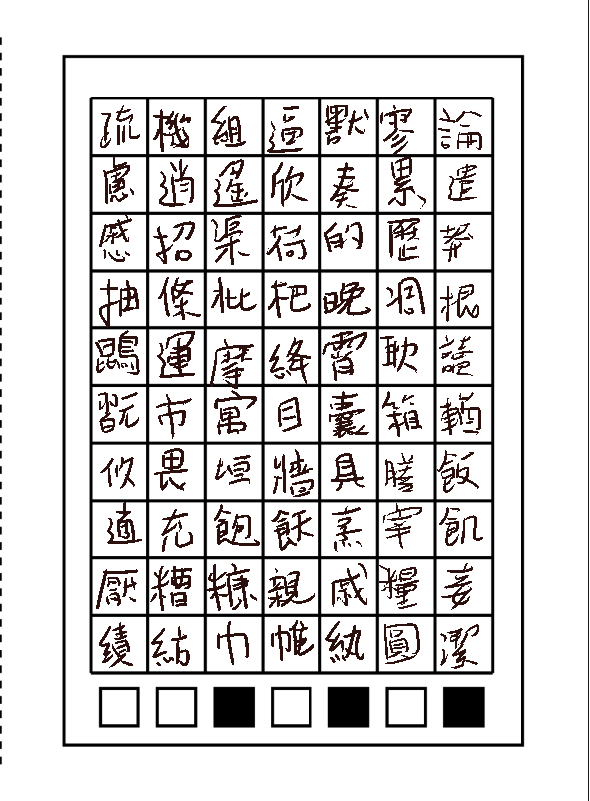 疏機組逼默寥論
慮逍遙欣奏累遣
慼招渠荷的歷莽
抽條枇杷晚凋根
鵾運摩絳霄耽讀
翫市寓目囊箱輶
攸畏垣牆具膳飯
適充飽飫烹宰飢
厭糟糠親戚糧妾
績紡巾帷紈圓潔